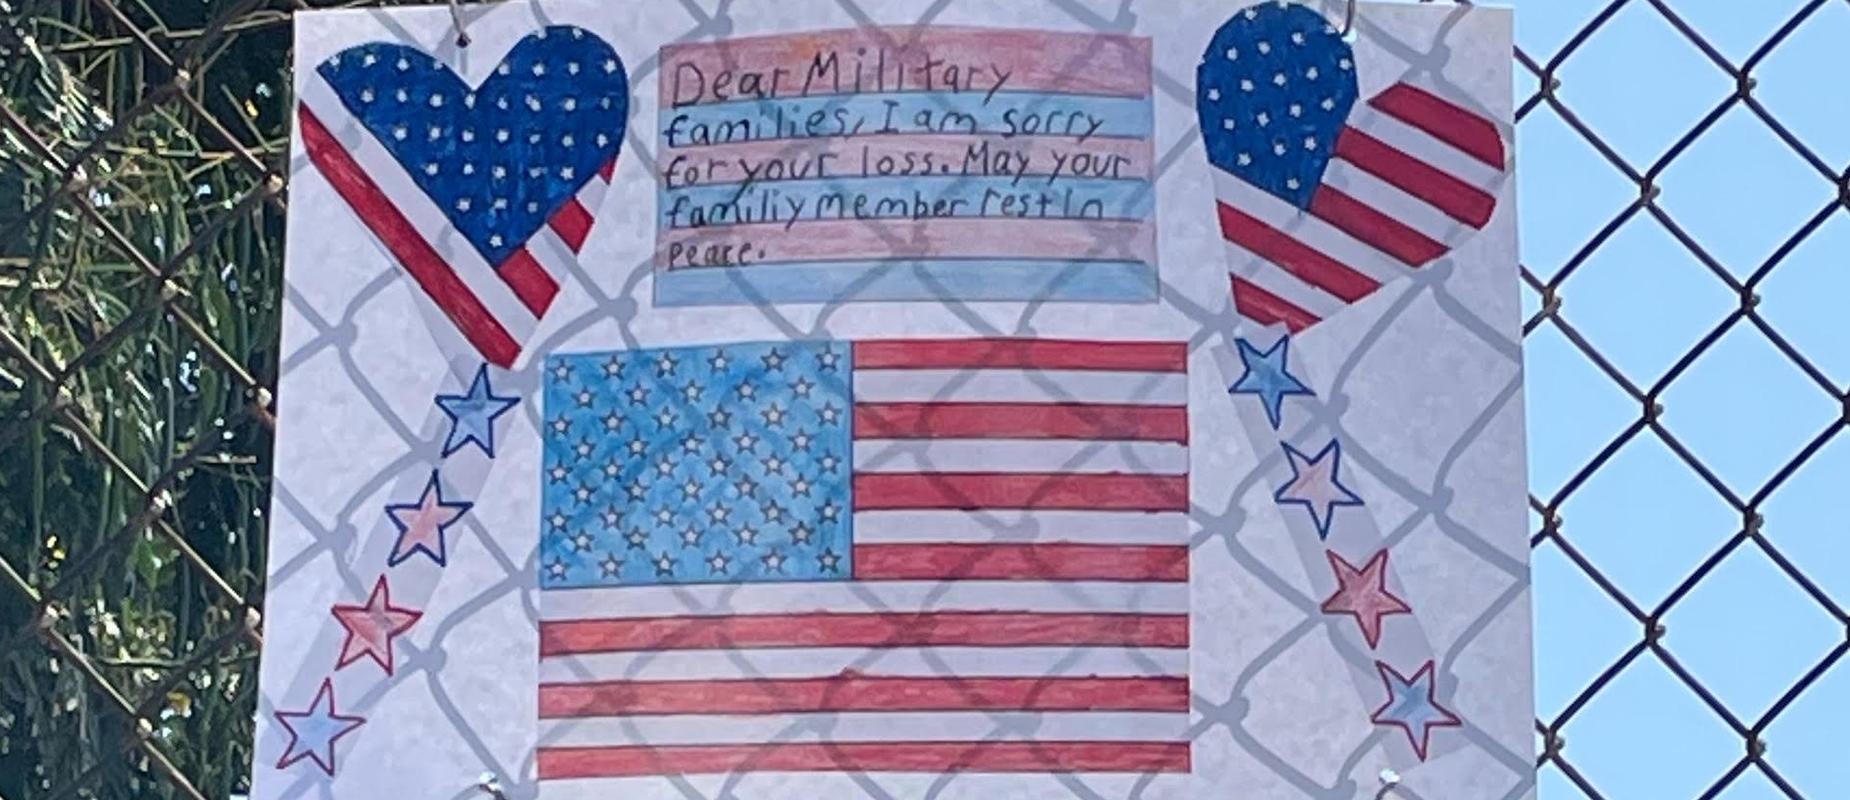 Dear Military
families, I am sorry
for your loss. May your
familiy member rest In
peace.